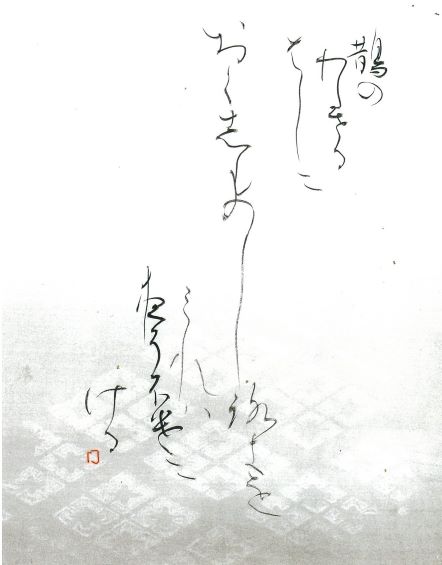 鵲の
わたせる
はしに
おく志ものしろきを
みれハ
夜そ不けに
ける